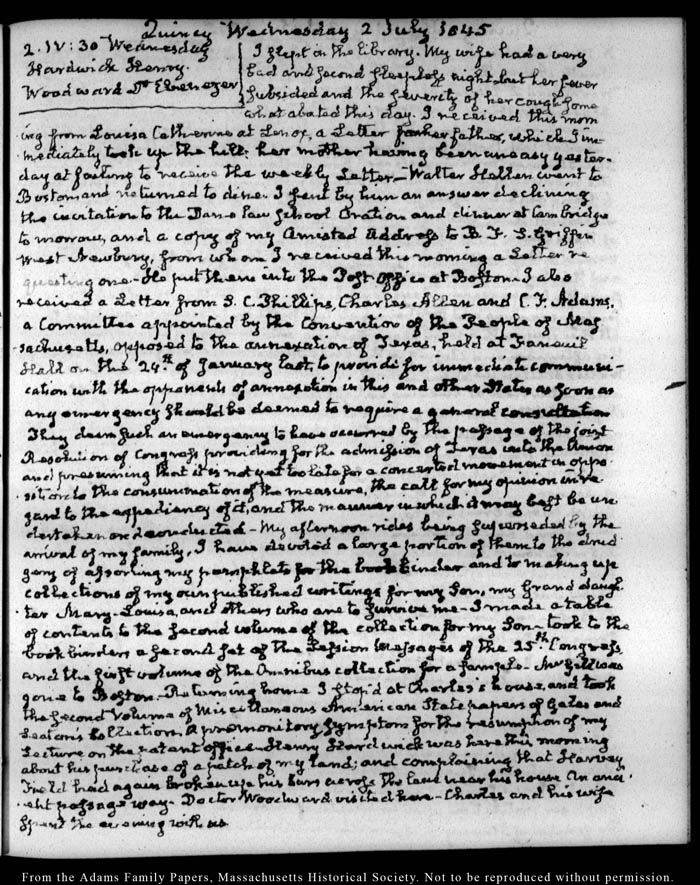 Quincy Wednesday 2 July 1845
2. IV: 30 Wednesday
Hardwick Henry.
Woodward Dr Ebenezer
I slept in the library. My wife had a very
bad and second sleepless night, but her fever
subsided and the severity of her cough some
what abated this day. I received this morn
ing from Louisa Catherine at Lenox, a Letter for her father, which I im-
mediately took up the hill: her mother having been uneasy yester-
day at failing to receive the weekly Letter— Walter Hellen went to
Boston and returned to dine. I sent by him an answer declining
the invitation to the Dane law School Oration and dinner at Cambridge
to morrow, and a copy of my Amistad Address to B. F. S. Griffin
West Newbury, from whom I received this morning a Letter re
questing one— He put them into the Post office at Boston. I also
received a Letter from S. C. Phillips, Charles Allen and C. F. Adams,
a Committee appointed by the Convention of the People of Mas
sachusetts, opposed to the annexation of Texas, held at Faneuil
Hall on the 29th of January last, to provide for immediate communi-
cation with the opponents of annexation in this and other States as soon as
any emergency should be deemed to require a general consultation
They deem such an emergency to have occurred by the passage of the joint
Resolution of Congress providing for the admission of Texas into the Union
and presuming that it is not yet too late for a concerted movement in oppo
sition to the consummation of the measure, the call for my opinion in re
gard to the expediency of it, and the manner in which it may best be un
dertaken and conducted— My afternoon rides being superseded by the
arrival of my family, I have devoted a large portion of them to the drud
gery of assorting my pamphlets for the book binder and to making up
collections of my own published writings for my Son, my Grand daugh-
ter Mary-Louisa, and others who are to survive me— I made a table
of contents to the second volume of the collection for my Son— took to the
book binders a second set of the Session Messages of the 25th Congress,
and the first volume of the Omnibus collection for a sample— Mr Gill was
gone to Boston— Returning home I stop'd at Charles's house, and took
the second Volume of Miscellaneous American State papers of Gales and
Seaton's Collection. A premonitory symptom for the resumption of my
Lecture on the patent office— Henry Hardwick was here this morning
about his purchase of a patch of my land; and complaining that Harvey
Field had again broken up his bars across the land near his house. An anci-
ent passage way. Doctor Woodward visited here— Charles and his wife
spent the evening with us
From the Adams Family Papers, Massachusetts Historical Society. Not to be reproduced without permission.